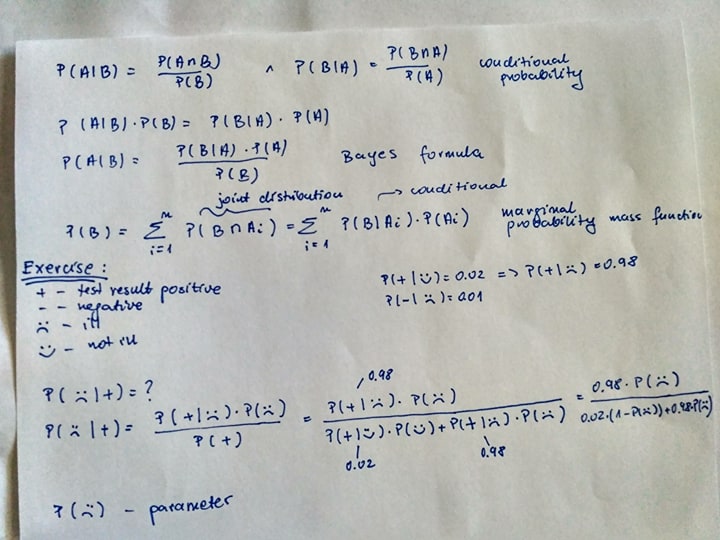 P(A|B) = P(A∩B)/P(B) ∧ P(B|A) = P(B∩A)/P(A) conditional probability
P(A|B)·P(B) = P(B|A)·P(A)
P(A|B) = P(B|A)·P(A)/P(B) Bayes formula
joint distribution → conditional
P(B) = Σ_{i=1}^{n} P(B∩Ai) = Σ_{i=1}^{n} P(B|Ai)·P(Ai) marginal probability mass function
Exercise:
+ - test result positive
- - negative
☹ - ill
☺ - not ill
P(+|☺) = 0.02 => P(+|☹) = 0.98
P(-|☹) = 0.01
P(☹|+) = ?
P(☹|+) = P(+|☹)·P(☹)/P(+) = P(+|☹)·P(☹)/(P(+|☺)·P(☺)+P(+|☹)·P(☹)) = 0.98·P(☹)/(0.02·(1-P(☹))+0.98·P(☹))
0.98
0.02 0.98
P(☹) - parameter